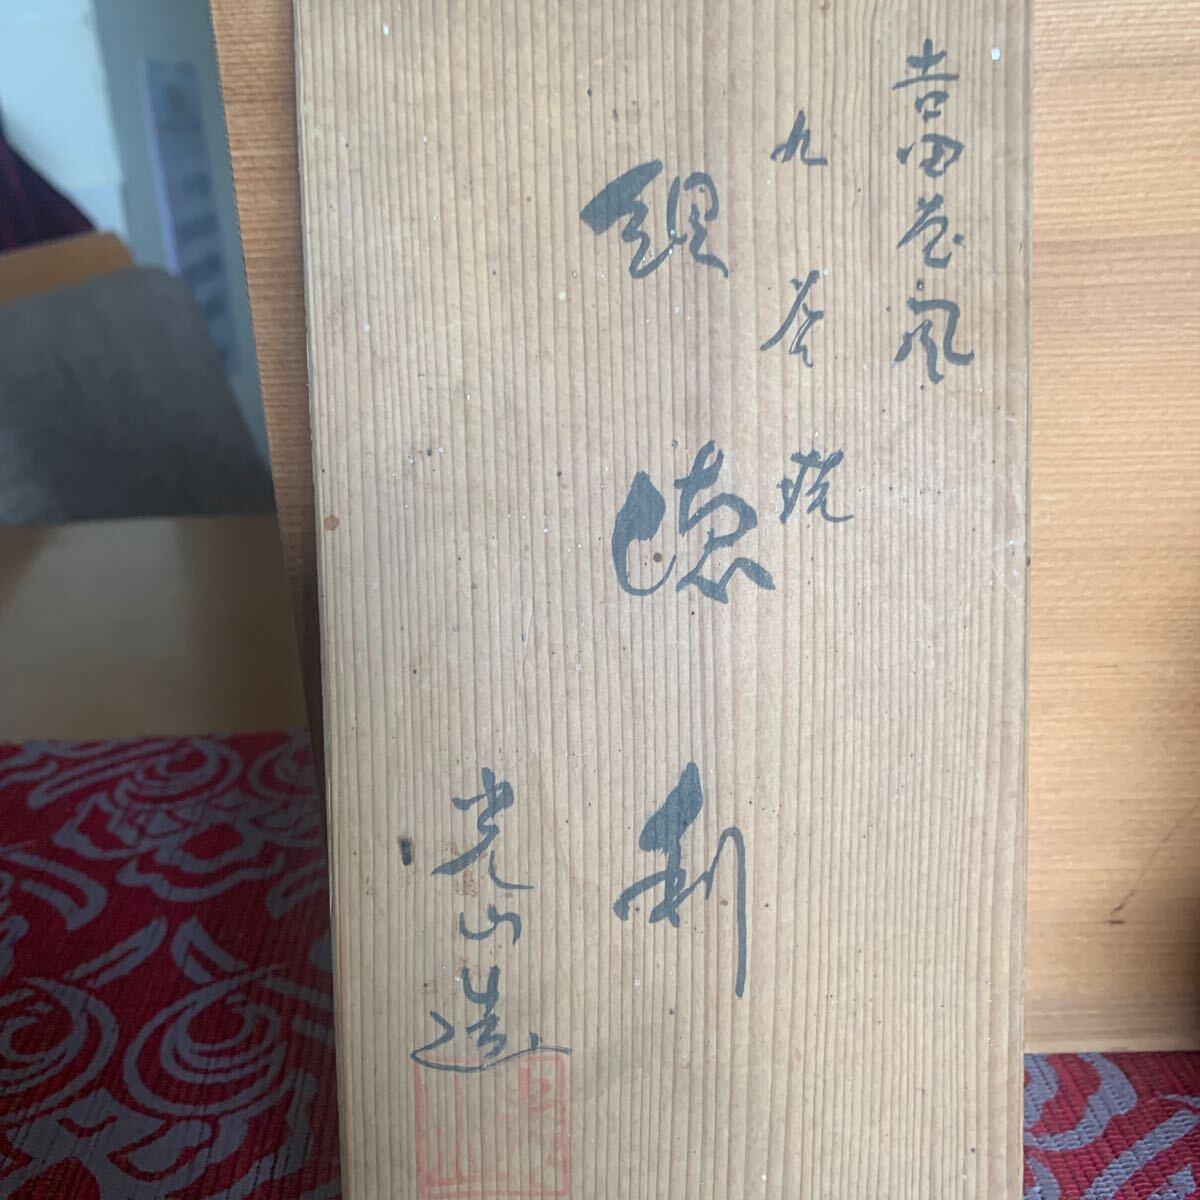 吉田屋風
九谷焼
徳利
光山造